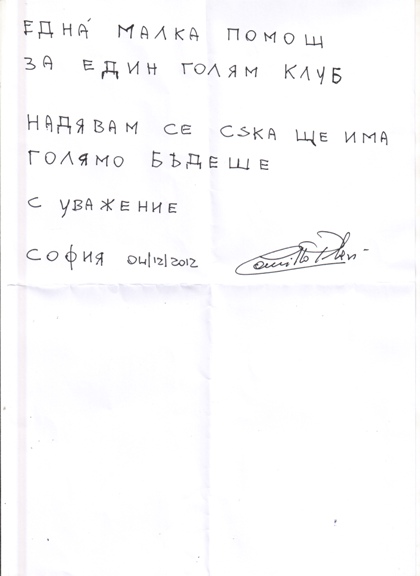 ЕДНА́ МАЛКА ПОМОЩ
ЗА ЕДИН ГОЛЯМ КЛУБ
НАДЯВАМ СЕ CSKA ЩЕ ИМА
ГОЛЯМО БЪДЕШЕ
С УВАЖЕНИЕ
СОФИЯ 04/12/2012